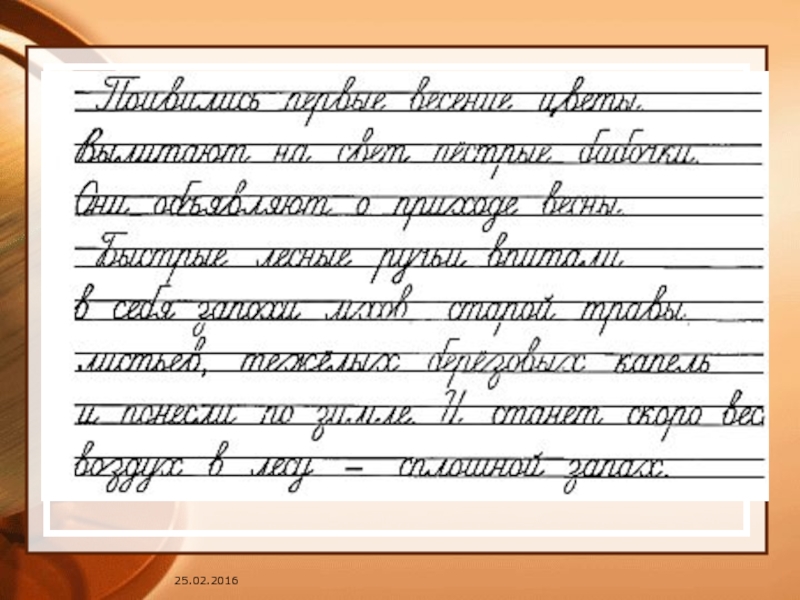 Поивились первые весение цветы.
Вылитают на свет пёстрые бабочки.
Они объявляют о приходе весны.
Быстрые лесные ручьи впитали
в себя запохи мхов старой травы
листьев, тежёлых берёзовых капель
и понесли по зимле. И станет скоро вес
воздух в лесу – сплошной запах.
25.02.2016